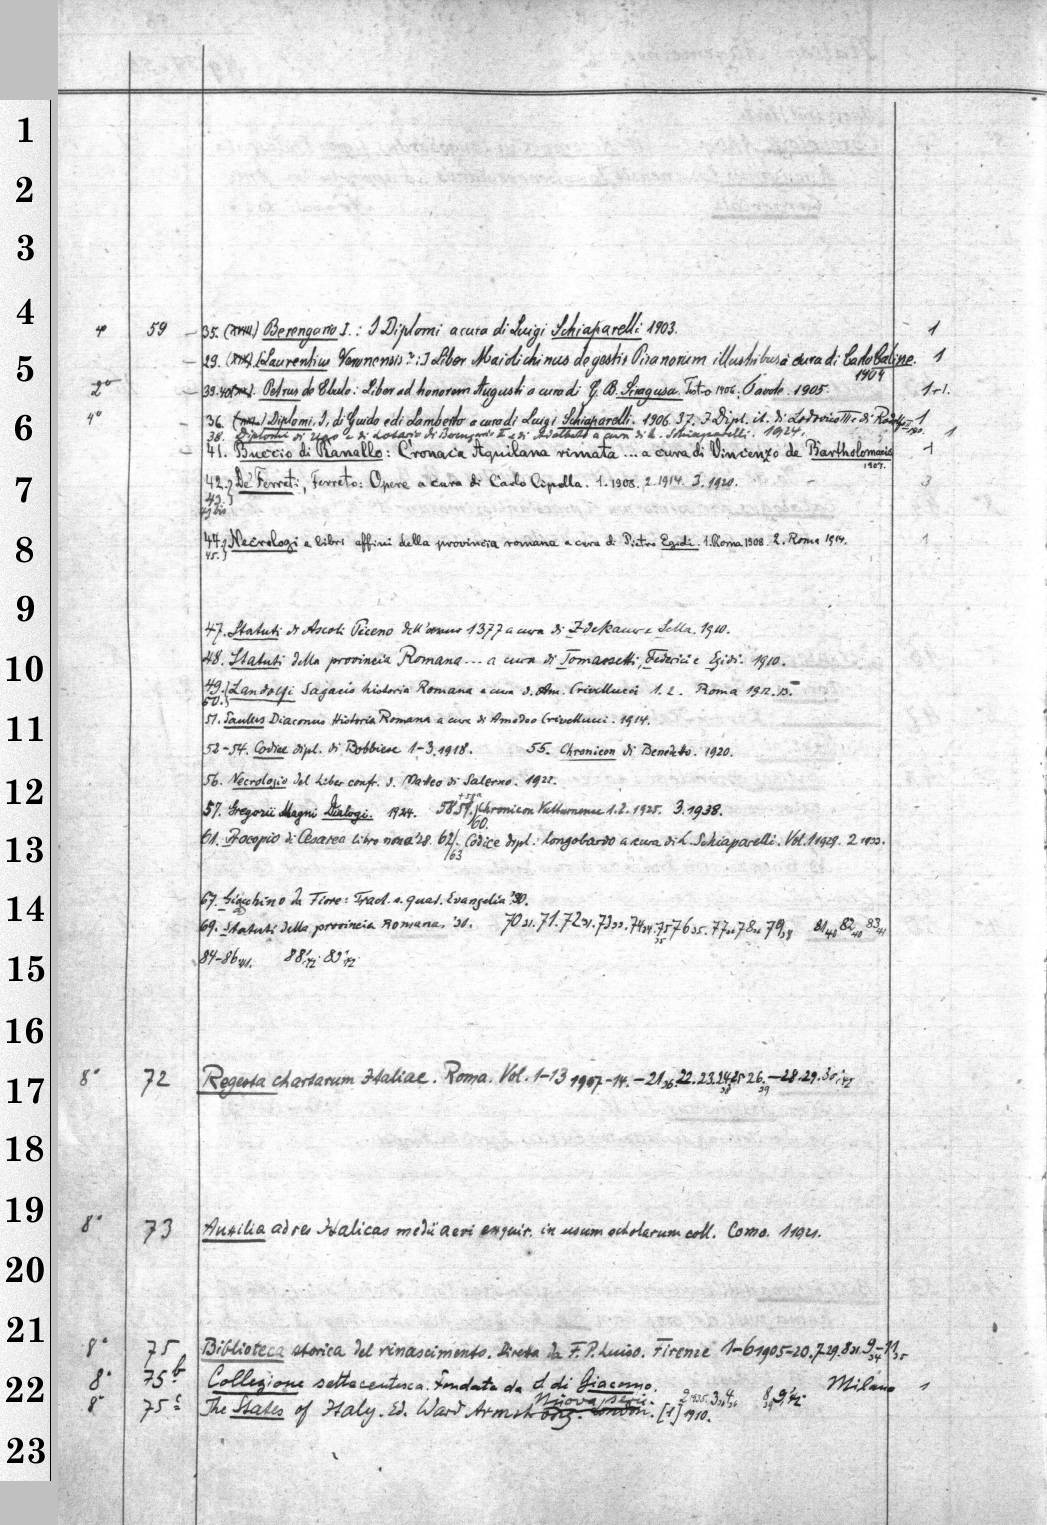 1
2
3
4
4° 59 – 35. (XVIII.) Berengario I. : I Diplomi a cura di Luigi Schiaparelli 1903. 1
5
– 29. (XIX.) (Laurentius Veronensis?:) Liber Maiolichinus de gestis Pisanorum illustribus a cura di Carlo Calisse. 1
1904
2° 39.40 Petrus de Ebulo: Liber ad honorem Augusti a cura di G. B. Siragusa. Testo 1906. Tavole. 1905. 1+1.
6
4° – 36. Diplomi, I, di Guido e di Lamberto a cura di Luigi Schiaparelli. 1906. 37. I Dipl. it. di Lodovico III e di Rodolfo II 1910. 1
38. Diplomi di Ugo e di Lotario di Berengario II e di Adalberto a cura di L. Schiaparelli. 1924. 1
– 41. Buccio di Ranallo: Cronaca Aquilana rimata ... a cura di Vincenzo de Bartholomaeis 1
1907.
7
42.} De' Ferreti, Ferreto: Opere a cura di Carlo Cipolla. 1. 1908. 2. 1914. 3. 1920. – 3
43.}
43 bis
8
44.} Necrologi e libri affini della provincia romana a cura di Pietro Egidi. 1. Roma 1908. 2. Roma 1914. 1
45.}
9
47. Statuti di Ascoli Piceno dell'anno 1377 a cura di Zdekauer e Sella. 1910.
10
48. Statuti della provincia Romana ... a cura di Tomassetti, Federici e Egidi. 1910.
49.} Landolfi Sagacis historia Romana a cura d. Am. Crivellucci 1. 2. Roma 1912. 13.
50.}
11
51. Paulus Diaconus Historia Romana a cura di Amedeo Crivellucci. 1914.
52–54. Codice dipl. di Bobbiese 1–3. 1918. 55. Chronicon di Benedetto. 1920.
12
56. Necrologio del Liber confr. d. Matteo di Salerno. 1922.
57. Gregorii Magni Dialogi. 1924. 58 59.} Chronicon Vulturnense 1. 2. 1925. 3. 1938.
60.
13
61. Procopio di Cesarea 28. 62/. Codice dipl. longobardo a cura di L. Schiaparelli. Vol. 1 1929. 2 1933.
63
14
67. Gioachino da Fiore: Tract. s. quat. Evangelia '30.
69. Statuti della provincia Romana. '31. 70 31. 71. 72 31. 73 33. 74 34. 75 35 76 35. 77 78 79 38 81 40 82 40 83 41
15
84–86 41. 88 '42 89 '42
16
17
8° 72 Regesta chartarum Italiae. Roma. Vol. 1–13 1907–14. – 21 36. 22. 23. 24 38 25 26. 39 – 28. 29. 30 '42
18
19
8° 73 Auxilia ad res Italicas medii aevi exquir. in usum scholarum coll. Como. 1 1921.
20
21
8° 75 Biblioteca storica del rinascimento. Diretta da F. P. Luiso. Firenze 1–6 1905–20. 7 29. 8 31. 9 34 – 11 35
22
8° 75b Collezione settecentesca. Fondata da d. di Giacomo. Milano 1
Nuova serie. 2 1935. 3 4. 8 39 9 '42
8° 75c The States of Italy. Ed. Ward Armstrong. London. [1] 1910.
23